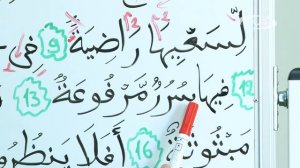 لِّسَعْيِهَا رَاضِيَةٌ 9 فِي
12 فِيهَا سُرُرٌ مَّرْفُوعَةٌ 13
مَبْثُوثَةٌ 16 أَفَلَا يَنظُرُ